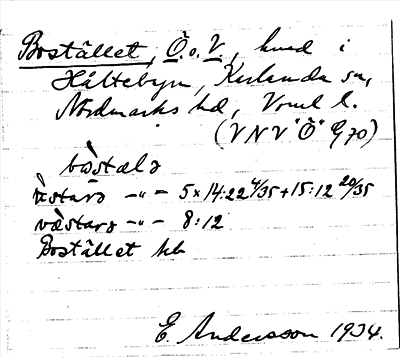 Bostället, Ö. o. V., hmd i
Håltebyn, Karlanda sn,
Nordmarks hd, Vrml l.
(VNV "Ö" G 70)
bòstælə
ö̀starə -"- 5×14:22 4/35 + 15:12 20/35
væ̀starə -"- 8:12
Bostället kb
E. Andersson 1934.